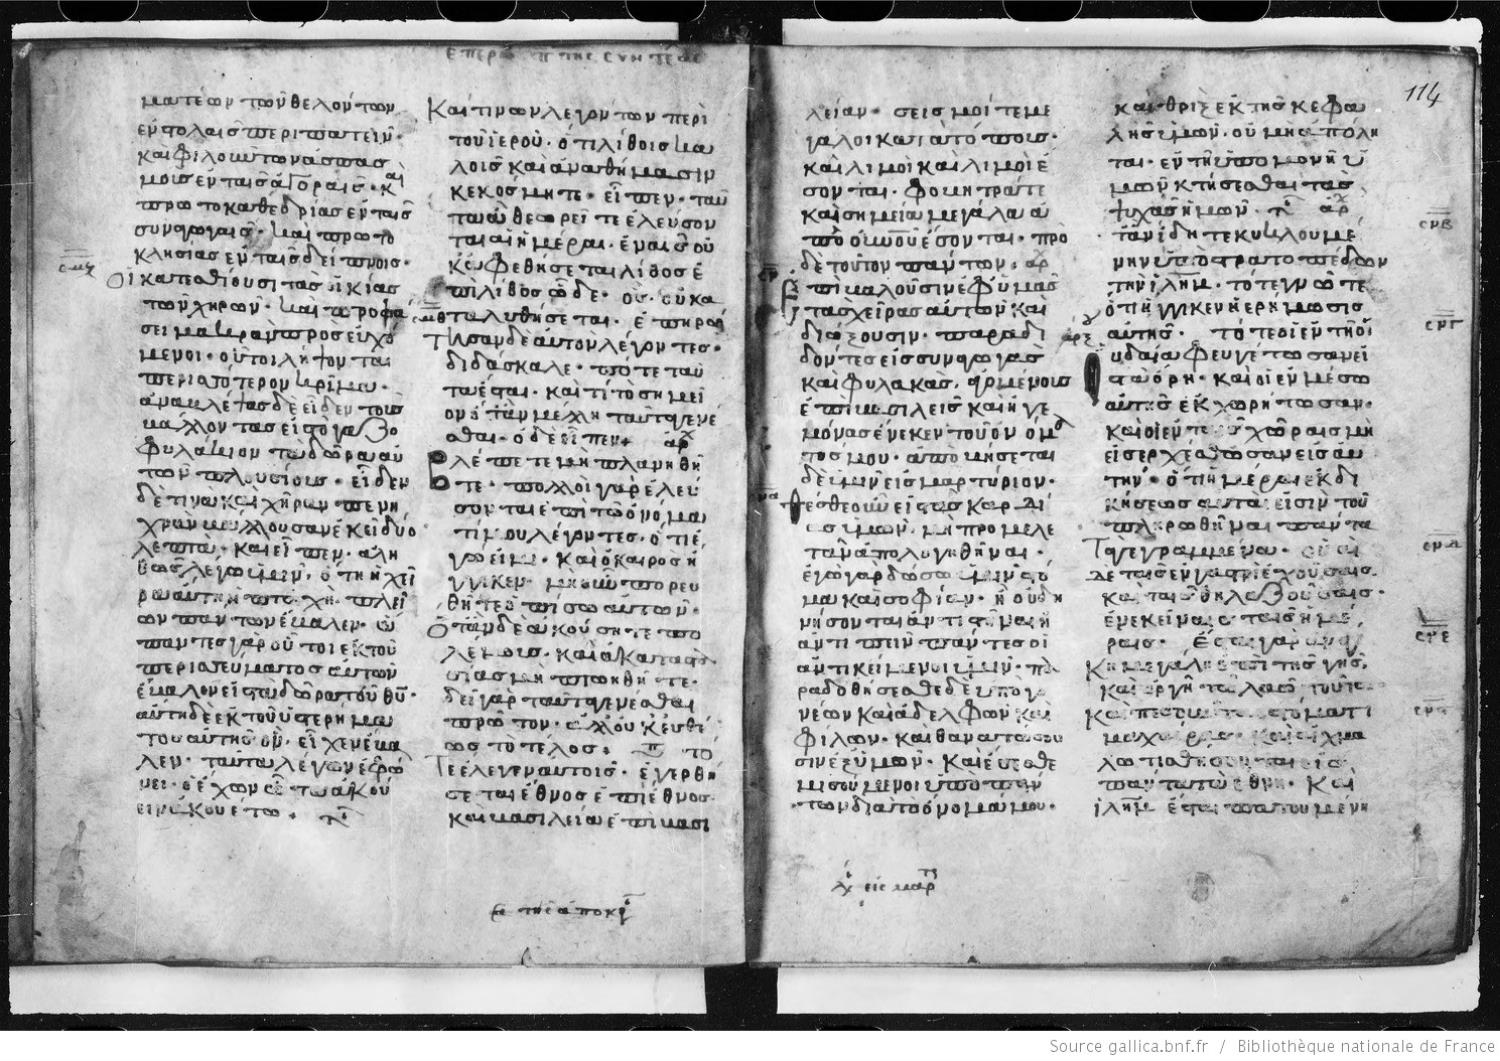 ματέων τῶν θελόντων
ἐν στολαῖς περιπατεῖν·
καὶ φιλούντων ἀσπασ
μοὺς ἐν ταῖς ἀγοραῖς· καὶ
πρωτοκαθεδρίας ἐν ταῖς
συναγωγαῖς· καὶ πρωτο
κλησίας ἐν τοῖς δείπνοις·
Οἱ κατεσθίουσι τὰς οἰκίας
τῶν χηρῶν· καὶ προφά
σει μακρὰ προσευχό
μενοι· οὗτοι λήψονται
περισσότερον κρῖμα·
ἀναβλέψας δὲ εἶδεν τοὺς
βάλλοντας εἰς τὸ γαζο
φυλάκιον τὰ δῶρα αὐ
τῶν πλουσίους· εἶδεν
δέ τινα καὶ χήραν πενι
χρὰν βάλλουσαν ἐκεῖ δύο
λεπτά· καὶ εἶπεν· ἀλη
θῶς λέγω ὑμῖν· ὅτι ἡ χή
ρα αὕτη ἡ πτωχὴ πλεῖ
ον πάντων ἔβαλεν·
πάντες γὰρ οὗτοι ἐκ τοῦ
περισσεύματος αὐτῶν
ἔβαλον εἰς τὰ δῶρα τοῦ θῦ·
αὕτη δὲ ἐκ τοῦ ὑστερήμα
τος αὐτῆς ὃν εἶχεν ἔβα
λεν· ταῦτα λέγων ἐφώ
νει· ὁ ἔχων ὦτα ἀκού
ειν ἀκουέτω·
Καί τινων λεγόντων περὶ
τοῦ ἱεροῦ· ὅτι λίθοις κα
λοῖς καὶ ἀναθήμασιν
κεκόσμηται· εἶπεν· ταῦ
τα ἃ θεωρεῖτε ἐλεύσον
ται αἱ ἡμέραι· ἐν αἷς οὐ
κ ἀφεθήσεται λίθος ἐ
πὶ λίθος ὧδε· ὃς οὐ κα
ταλυθήσεται· ἐπηρώ
τησαν δὲ αὐτὸν λέγοντες·
διδάσκαλε· πότε ταῦ
τα ἔσται· καὶ τί τὸ σημεῖ
ον ὅταν μέλλῃ ταῦτα γενέ
σθαι· ὁ δὲ εἶπεν·
Βλέπετε μὴ πλανηθῆ
τε· πολλοὶ γὰρ ἐλεύ
σονται ἐπὶ τῷ ὀνόμα
τί μου λέγοντες· ὅτι ἐ
γώ εἰμι· καὶ ὁ καιρὸς ἤ
γγικεν· μὴ οὖν πορευ
θῆτε ὀπίσω αὐτῶν·
Ὅταν δὲ ἀκούσητε πο
λέμους· καὶ ἀκαταστα
σίας μὴ πτοηθῆτε·
δεῖ γὰρ ταῦτα γενέσθαι
πρῶτον· ἀλλ' οὐκ εὐθέ
ως τὸ τέλος·
Τότε ἔλεγεν αὐτοῖς· ἐγερθή
σεται ἔθνος ἐπὶ ἔθνος·
καὶ βασιλεία ἐπὶ βασι
λείαν· σεισμοί τε με
γάλοι κατὰ τόπους·
καὶ λιμοὶ καὶ λιμοὶ ἔ
σονται· φόβητρά τε
καὶ σημεῖα μεγάλα ἀ
πὸ οὐνοῦ ἔσονται· πρὸ
δὲ τούτων πάντων·
ἐπιβαλοῦσιν ἐφ' ὑμᾶς
τὰς χεῖρας αὐτῶν καὶ
διώξουσιν· παραδι
δόντες εἰς συναγωγὰς
καὶ φυλακὰς, ἀγομένους
ἐπὶ βασιλεῖς καὶ ἡγε
μόνας ἕνεκεν τοῦ ὀνόμα
τός μου· ἀποβήσεται
δὲ ὑμῖν εἰς μαρτύριον·
θέσθε οὖν εἰς τὰς καρδί
ας ὑμῶν· μὴ προμελε
τᾶν ἀπολογηθῆναι·
ἐγὼ γὰρ δώσω ὑμῖν στό
μα καὶ σοφίαν· ᾗ οὐ δυ
νήσονται ἀντιστῆναι ἢ
ἀντιπεῖν πάντες οἱ
ἀντικείμενοι ὑμῖν· πα
ραδοθήσεσθε δὲ ὑπὸ γο
νέων καὶ ἀδελφῶν καὶ
φίλων· καὶ θανατώσου
σιν ἐξ ὑμῶν· καὶ ἔσεσθε
μισούμενοι ὑπὸ πάν
των διὰ τὸ ὄνομά μου·
114
καὶ θρὶξ ἐκ τῆς κεφα
λῆς ὑμῶν· οὐ μὴ ἀπόλη
ται· ἐν τῇ ὑπομονῇ ὑ
μῶν κτήσεσθαι τὰς
ψυχὰς ἡμῶν·
ὅταν ἴδητε κυκλουμέ
νην ὑπὸ στρατοπέδων
τὴν ἰλημ· τότε γνῶτε
ὅτι ἤγγικεν ἡ ἐρήμωσις
αὐτῆς· τότε οἱ ἐν τῇ ἰου
δαίᾳ φευγέτωσαν εἰ
ς τὰ ὄρη· καὶ οἱ ἐν μέσω
αὐτῆς ἐκχωρήτωσαν·
καὶ οἱ ἐν ταῖς χώραις μὴ
εἰσερχέσθωσαν εἰς αὐ
τήν· ὅτι ἡμέραι ἐκδι
κήσεως αὗται εἰσὶν τοῦ
πληρωθῆναι πάντα
Τὰ γεγραμμένα· οὐαὶ
δὲ ταῖς ἐν γαστρὶ ἐχούσαις
καὶ ταῖς θηλαζούσαις·
ἐν ἐκείναις ταῖς ἡμέ
ραις· ἔσται γὰρ ἀνάγ
κη μεγάλη ἐπὶ τῆς γῆς·
καὶ ὀργὴ τῷ λαῷ τούτω
καὶ πεσοῦνται στόματι
μαχαίρας· καὶ αἰχμα
λωτισθήσονται εἰς
πάντα τὰ ἔθνη· καὶ
ἰλημ ἔσται πατουμένη